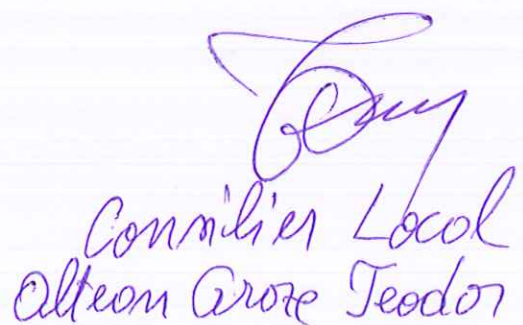 Consilier Local
Oltean Groze Teodor